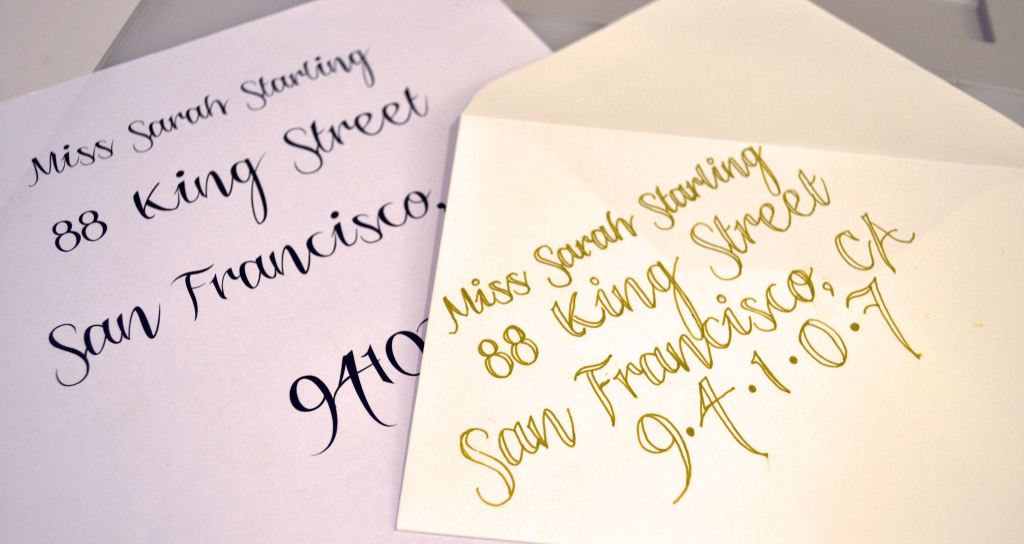 Miss Sarah Starling
88 King Street
San Francisco,
9410
Miss Sarah Starling
88 King Street
San Francisco, CA
9.4.1.0.7